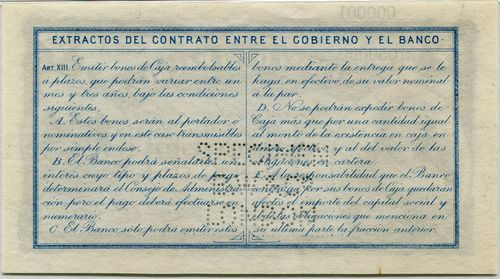 EXTRACTOS DEL CONTRATO ENTRE EL GOBIERNO Y EL BANCO
ART. XIII. Emitir bonos de Caja reembolsables
á plazos, que podrán variar entre un
mes y tres años, bajo las condiciones
siguientes.
A. Estos bonos serán al portador ó
nominativos, y en este caso transmisibles
por simple endoso.
B. El Banco podrá señalarles un
interés cuyo tipo y plazos de pago
determinará el Consejo de Administra
ción, pero el pago deberá efectuarse en
numerario.
C. El Banco sólo podrá emitir estos
bonos mediante la entrega que se le
haga, en efectivo, de su valor nominal
á la par.
D. No se podrán expedir bonos de
Caja más que por una cantidad igual
al monto de la existencia en caja en
y al del valor de las
en cartera.
responsabilidad que el Banco
por sus bonos de Caja quedarán
afectos el importe del capital social y
el de las obligaciones que menciona en
su última parte la fracción anterior.
SPECIMEN
LONDON
000001